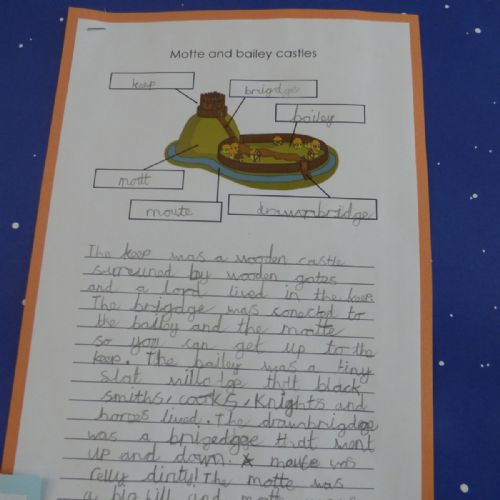 Motte and bailey castles
keep
brigdge
bailey
mott
moute
drawnbridge
The keep was a wooden castle
surreuned by wooden gates
and a lord lived in the keep.
The brigdge was conected to
the bailey and the motte
so you can get up to the
keep. The bailey was a tiny
slot villadge that black
smiths, cooks, Knights and
horses lived. The drawnbrigdge
was a brigedgge that went
up and down. moute was
relly dirty! The motte was
a big hill and